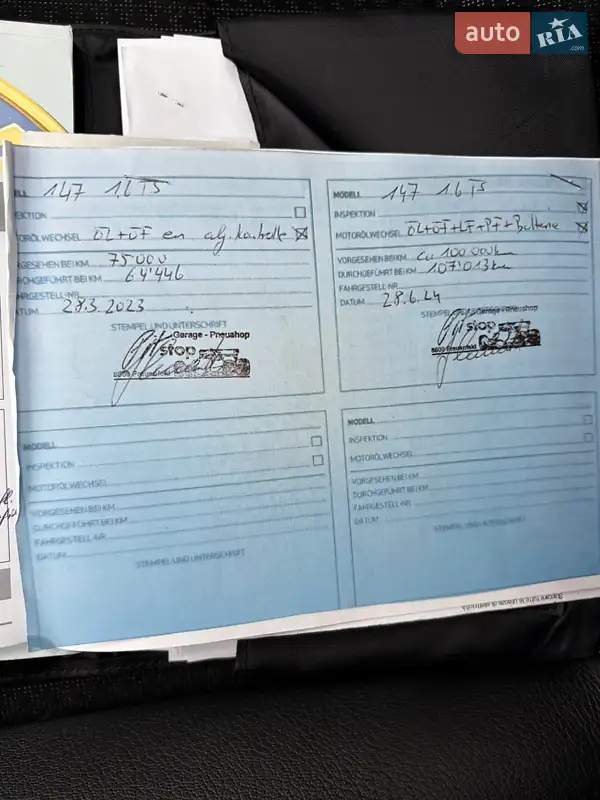 auto RIA .com
ELL 147 1.6 TS
EKTION
MOTORÖLWECHSEL ÖL+ÖF
GESEHEN BEI KM 75'000
RCHGEFÜHRT BEI KM 64'446
HRGESTELL-NR.
TUM 28.3.2023
STEMPEL UND UNTERSCHRIFT
Garage - Pneushop
stop
MODELL 147 1.6 TS
INSPEKTION
MOTORÖLWECHSEL ÖL+ÖF+LF+PF+Batterie
VORGESEHEN BEI KM ca 100'000km
DURCHGEFÜHRT BEI KM 107'013km
FAHRGESTELL-NR.
DATUM 28.6.24
Garage - Pneushop
stop
8500 Frauenfeld
MODELL
INSPEKTION
MOTORÖLWECHSEL
VORGESEHEN BEI KM
DURCHGEFÜHRT BEI KM
FAHRGESTELL-NR.
DATUM
STEMPEL UND UNTERSCHRIFT
MODELL
INSPEKTION
MOTORÖLWECHSEL
VORGESEHEN BEI KM
DURCHGEFÜHRT BEI KM
FAHRGESTELL-NR.
DATUM
STEMPEL UND UNTERSCHRIFT